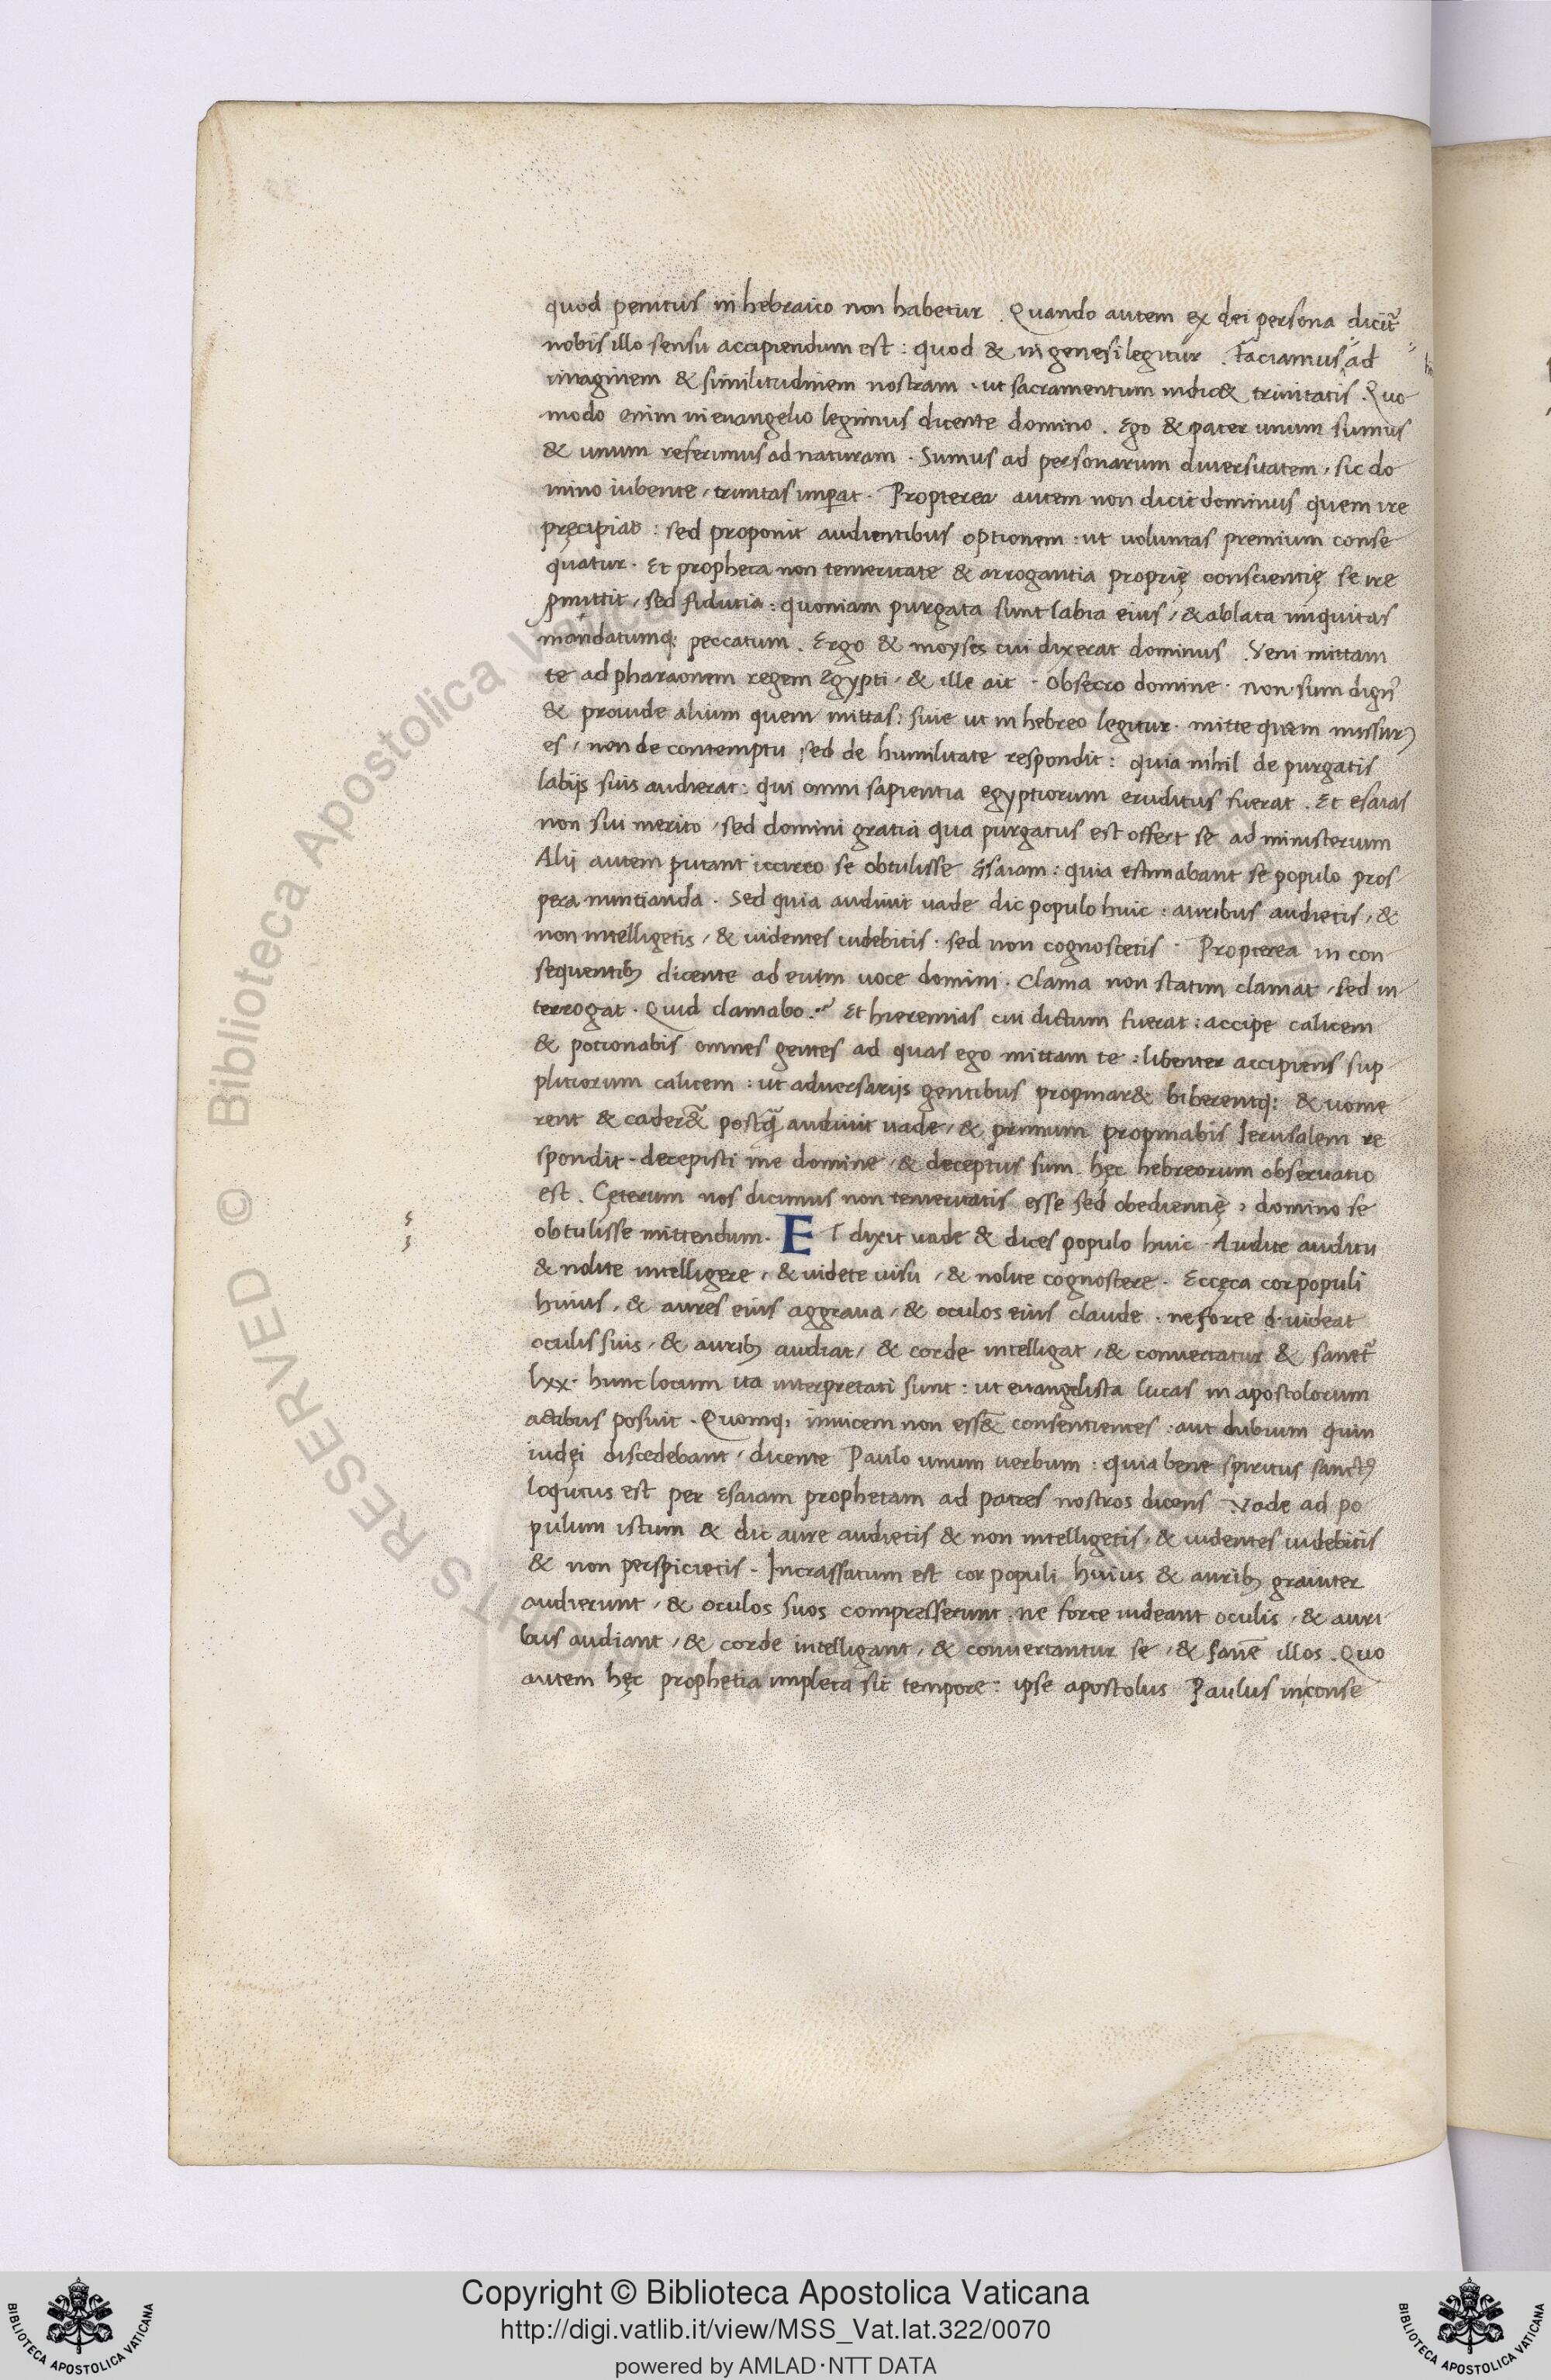 quod penitus in hebraico non habetur . Quando autem ex dei persona dicit᷑
nobis illo sensu accipiendum est : quod & in genesi legitur . faciamus ad
imaginem & similitudinem nostram . ut sacramentum indic& trinitatis . Quo
modo enim in euangelio legimus dicente domino . Ego & pater unum sumus
& unum referimus ad naturam . Sumus ad personarum diuersitatem , sic do
mino iubente , trinitas imꝑat . Propterea autem non dicit dominus quem ire
pręcipiat : sed proponit audientibus optionem : ut uoluntas premium conse
quatur . Et propheta non temeritate & arrogantia proprię conscientię se ire
ꝓmittit , sed fiducia : quoniam purgata sunt labia eius , & ablata iniquitas
mandatumq; peccatum . Ergo & moyses cui dixerat dominus . Veni mittam
te ad pharaonem regem Egypti , & ille ait . obsecro domine . non sum dign᷒
& prouide alium quem mittas : siue ut in hebreo legitur . mitte quem missur᷒
es , non de contemptu sed de humilitate respondit : quia nihil de purgatis
labijs suis audierat : qui omni sapientia egyptiorum eruditus fuerat . Et esaias
non sui merito , sed domini gratia qua purgatus est offert se ad ministerium
Alij autem putant iccirco se obtulisse Esaiam : quia estimabant se populo pros
pera nuntianda . Sed quia audiuit uade dic populo huic : auribus audietis , &
non intelligetis , & uidentes uidebitis . sed non cognoscetis . Propterea in con
sequentib; dicente ad eum uoce domini . Clama non statim clamat , sed in
terrogat . Quid clamabo . Et hieremias cui dictum fuerat : accipe calicem
& potionabis omnes gentes ad quas ego mittam te : libenter accipiens sup
pliciorum calicem : ut aduersarijs gentibus propinar& biberentq; & uome
rent & cader&̃ postq̃ audiuit uade , & primum propinabis Ierusalem re
spondit . decepisti me domine , & deceptus sum . hęc hebreorum obseruatio
est . Cęterum nos dicimus non temeritatis esse sed obedientię , domino se
obtulisse mittendum . ET dixit uade & dices populo huic . Audite auditu
& nolite intelligere , & uidete uisu , & nolite cognoscere . Eccęca cor populi
huius , & aures eius aggraua , & oculos eius claude . ne forte uideat
oculis suis , & aurib; audiat , & corde intelligat , & conuertatur & sanet᷑
lxx . hunc locum ita interpretati sunt : ut euangelista lucas in apostolorum
actibus posuit . Quomq; inuicem non ess&̃ consentientes : aut dubium quin
iudęi discedebant , dicente Paulo unum uerbum : quia bene spiritus sanct᷒
loqutus est per Esaiam prophetam ad patres nostros dicens Vade ad po
pulum istum & dic aure audietis & non intelligetis , & uidentes uidebitis
& non perspicietis . Incrassatum est cor populi huius & aurib; grauiter
audierunt , & oculos suos compresserunt . ne forte uideant oculis , & auri
bus audiant , & corde intelligant , & conuertantur se , & sanē illos . Quo
autem hęc prophetia impleta sit tempore : ipse apostolus Paulus in conse
© Biblioteca Apostolica Vaticana
Copyright © Biblioteca Apostolica Vaticana
http://digi.vatlib.it/view/MSS_Vat.lat.322/0070
powered by AMLAD·NTT DATA
BIBLIOTECA APOSTOLICA VATICANA
BIBLIOTECA APOSTOLICA VATICANA